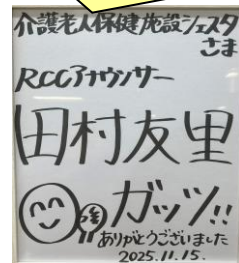 介護老人保健施設シェスタ
さま
RCCアナウンサー
田村友里
ガッツ!!
ありがとうございました
2025.11.15.